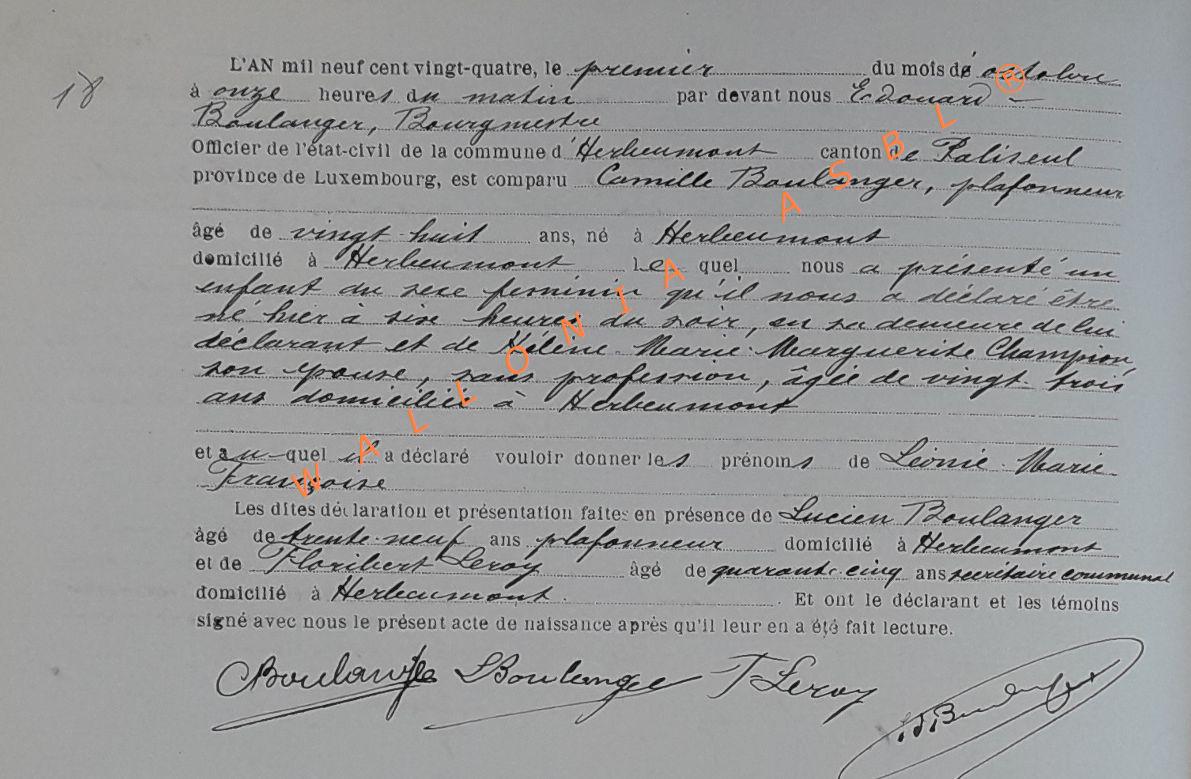 18
L'AN mil neuf cent vingt-quatre, le premier du mois de octobre
à onze heures du matin par devant nous Edouard
Boulanger, Bourgmestre
Officier de l'état-civil de la commune d'Herbeumont canton de Paliseul
province de Luxembourg, est comparu Camille Boulanger, plafonneur
âgé de vingt huit ans, né à Herbeumont
domicilié à Herbeumont Lequel nous a présenté un
enfant du sexe féminin qu'il nous a déclaré être
né hier à six heures du soir, en sa demeure de lui
déclarant et de Hélène Marie Marguerite Champion,
son épouse, sans profession, âgée de vingt trois
ans domiciliée à Herbeumont
et au quel il a déclaré vouloir donner les prénoms de Léonie Marie
Françoise
Les dites déclaration et présentation faites en présence de Lucien Boulanger
âgé de trente-neuf ans plafonneur domicilié à Herbeumont
et de Floribert Leroy âgé de quarante cinq ans secrétaire communal
domicilié à Herbeumont. Et ont le déclarant et les témoins
signé avec nous le présent acte de naissance après qu'il leur en a été fait lecture.
CBoulanger LBoulanger F Leroy
WALLONIA ASBL ®